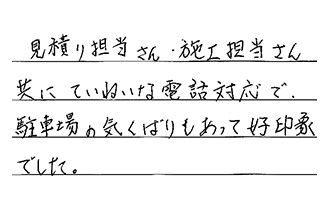 見積り担当さん・施工担当さん
共にていねいな電話対応で、
駐車場の気くばりもあって好印象
でした。